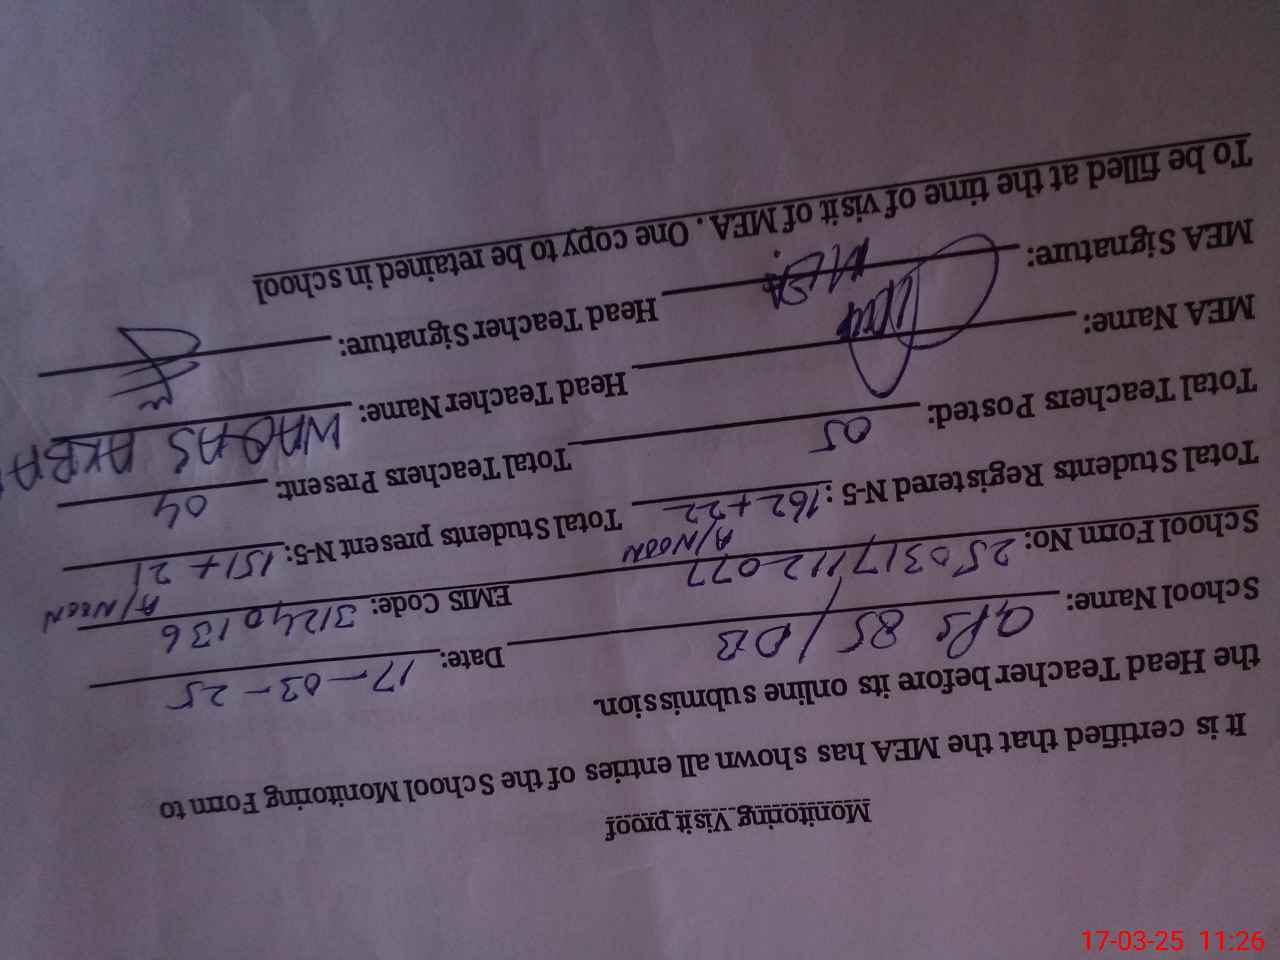 Monitoring Visit proof
It is certified that the MEA has shown all entries of the School Monitoring Form to
the Head Teacher before its online submission.
School Name: GPS 85/DB Date: 17-03-25
School Form No: 250317112077 EMIS Code: 31240136
Total Students Registered N-5: 162+22 A/NOON Total Students present N-5: 151+21 A/NOON
Total Teachers Posted: 05 Total Teachers Present: 04
MEA Name: Head Teacher Name: WAQAS AKBA
MEA Signature: MEA Head Teacher Signature:
To be filled at the time of visit of MEA. One copy to be retained in school
17-03-25 11:26